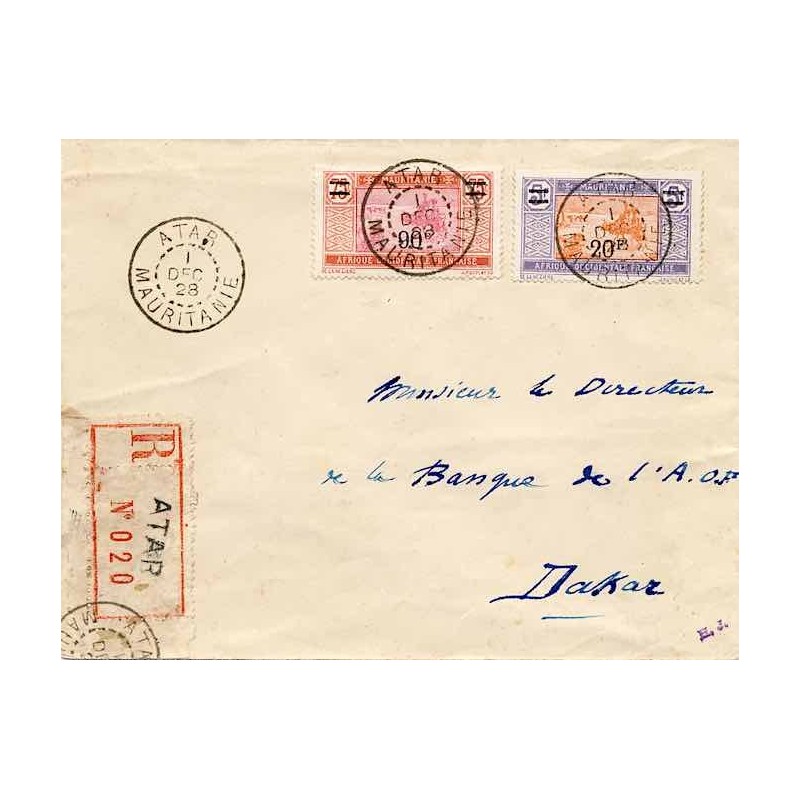 75 MAURITANIE 75
90
AFRIQUE OCCIDENTALE FRANÇAISE
ATAR
1
DEC
28
MAURITANIE
5F MAURITANIE 5F
20 FR
AFRIQUE OCCIDENTALE FRANÇAISE
1
MAURITANIE
ATAR
1
DEC
28
MAURITANIE
Monsieur le Directeur
de la Banque de l'A.O.F
Dakar
R
ATAR
N° 020
ATAR
1
DEC
MAU
E. J.